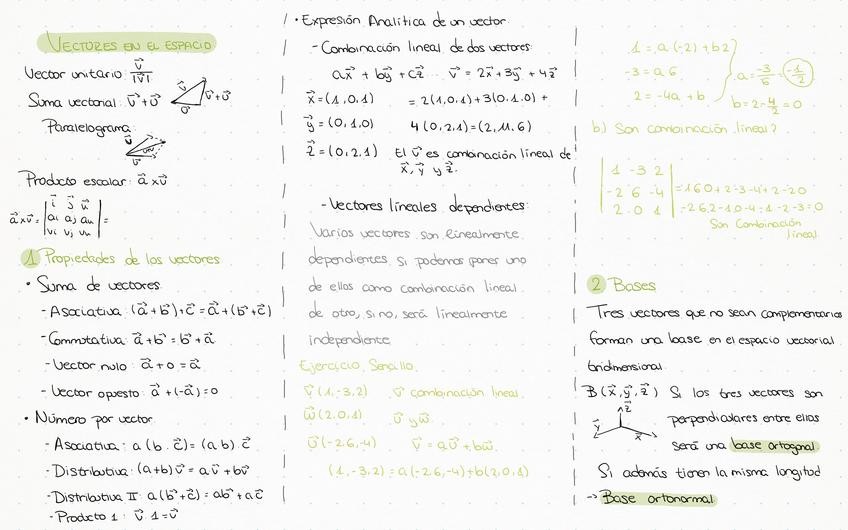 VECTORES EN EL ESPACIO
Vector unitario: v⃗/|v⃗|
Suma vectorial: v⃗+u⃗
v⃗ v⃗+u⃗
u⃗
Paralelogramo
Producto escalar: a⃗xv⃗
a⃗xv⃗ = | i⃗ j⃗ u⃗ | =
ai aj au
vi vj vu
1 Propiedades de los vectores
• Suma de vectores
- Asociativa: (a⃗+b⃗)+c⃗ = a⃗+(b⃗+c⃗)
- Conmutativa: a⃗+b⃗ = b⃗+a⃗
- Vector nulo: a⃗+0 = a⃗
- Vector opuesto: a⃗+(-a⃗)=0
• Número por vector
- Asociativa: a(b·c⃗)=(a·b)·c⃗
- Distributiva: (a+b)v⃗ = av⃗+bv⃗
- Distributiva II: a(b⃗+c⃗) = ab⃗+ac⃗
- Producto 1: v⃗·1=v⃗
• Expresión Analítica de un vector
- Combinación lineal de dos vectores:
ax⃗ + by⃗ + cz⃗ ... v⃗ = 2x⃗+3y⃗+4z⃗
x⃗=(1,0,1) = 2(1,0,1)+3(0,1,0)+
y⃗=(0,1,0) 4(0,2,1)=(2,11,6)
z⃗=(0,2,1) El v⃗ es combinación lineal de
x⃗, y⃗ y z⃗.
- Vectores líneales dependientes:
Varios vectores son linealmente
dependientes si podemos poner uno
de ellos como combinación lineal
de otro, si no, será linealmente
independiente
Ejercicio Sencillo
v⃗(1,-3,2) v⃗ combinación lineal
w⃗(2,0,1) u⃗ y w⃗.
u⃗(-2,6,-4) v⃗ = au⃗+bw⃗
(1,-3,2)=a(-2,6,-4)+b(2,0,1)
1 = a(-2)+b2
-3 = a6 a=-3/6=-1/2
2 = -4a+b b=2-4/2=0
b) Son combinación lineal?
| 1 -3 2 |
| -2 6 -4 |
| 2 0 1 |
Son Combinación
lineal
2 Bases
Tres vectores que no sean complementarios
forman una base en el espacio vectorial
tridimensional
B(x⃗,y⃗,z⃗) Si los tres vectores son
z⃗
y⃗
x⃗
perpendiculares entre ellos
será una base ortogonal
Si además tienen la misma longitud
-> Base ortonormal